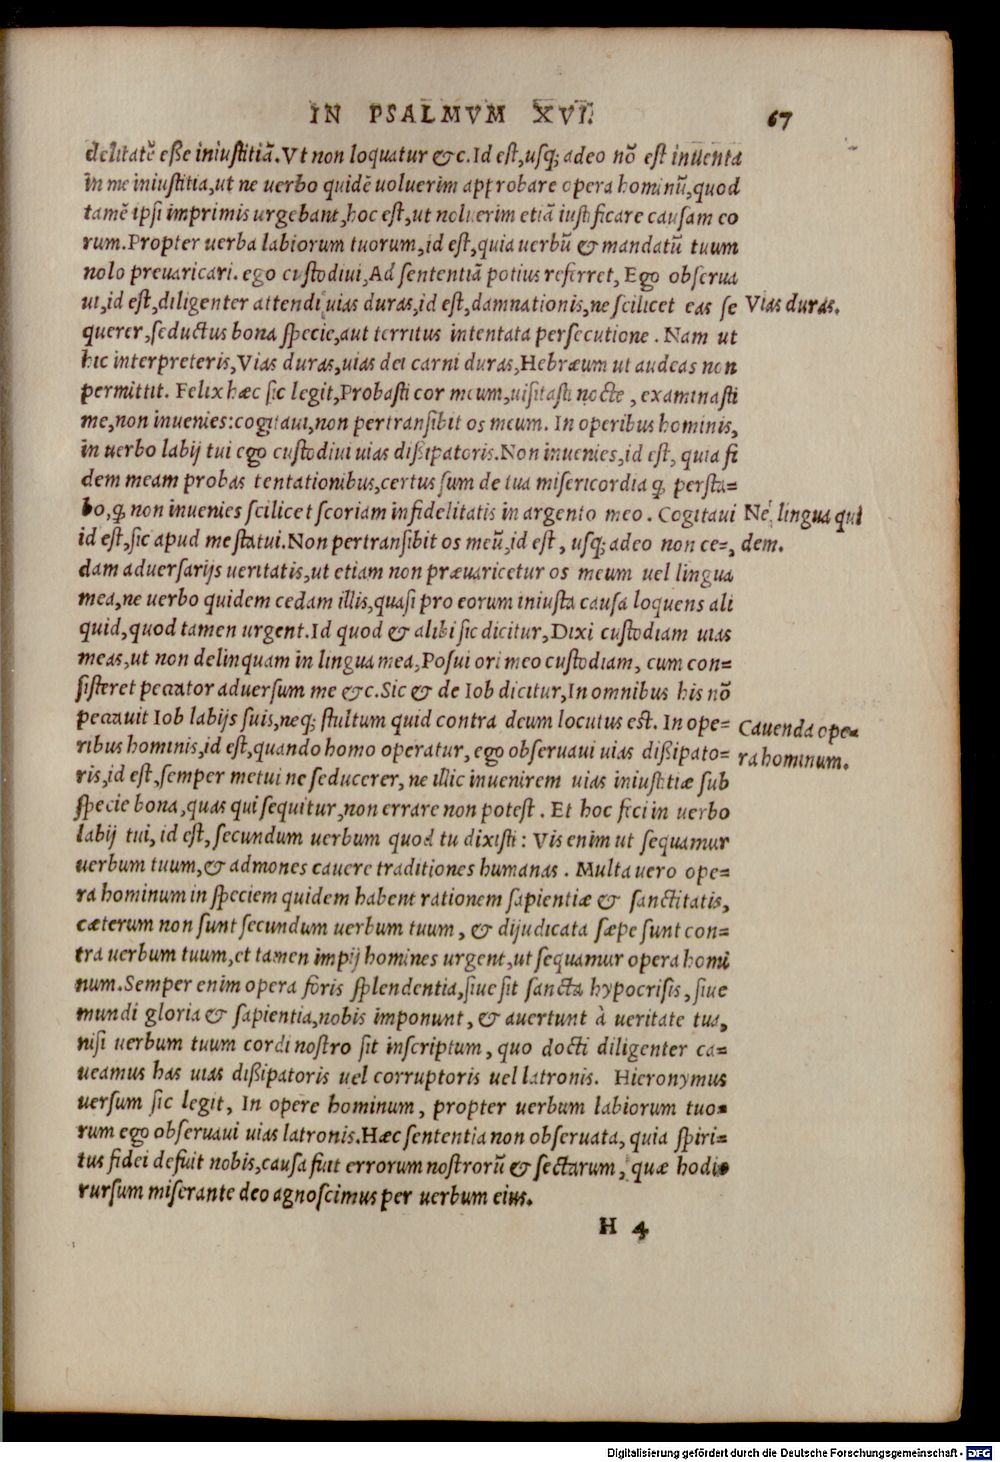 IN PSALMVM XVI. 67
delitatẽ eſſe iniuſtitiã. Vt non loquatur &c. Id eſt, uſq; adeo nõ eſt inuenta
in me iniuſtitia, ut ne uerbo quidẽ uoluerim approbare opera hominũ, quod
tamẽ ipſi imprimis urgebant, hoc eſt, ut noluerim etiã iuſtificare cauſam eo
rum. Propter uerba labiorum tuorum, id eſt, quia uerbũ & mandatũ tuum
nolo preuaricari. ego cuſtodiui, Ad ſententiã potius referret, Ego obſerua
ui, id eſt, diligenter attendi uias duras, id eſt, damnationis, ne ſcilicet eas ſe Vias duras.
querer, ſeductus bona ſpecie, aut territus intentata perſecutione. Nam ut
hic interpreteris, Vias duras, uias dei carni duras, Hebræum ut audeas non
permittit. Felix hæc ſic legit, Probaſti cor meum, uiſitaſti nocte, examinaſti
me, non inuenies: cogitaui, non pertranſibit os meum. In operibus hominis,
in uerbo labij tui ego cuſtodiui uias diſſipatoris. Non inuenies, id eſt, quia fi
dem meam probas tentationibus, certus ſum de tua miſericordia q̃ perſta=
bo, q̃ non inuenies ſcilicet ſcoriam infidelitatis in argento meo. Cogitaui Ne lingua qui
id eſt, ſic apud me ſtatui. Non pertranſibit os meũ, id eſt, uſq; adeo non ce=, dem.
dam aduerſarijs ueritatis, ut etiam non præuaricetur os meum uel lingua
mea, ne uerbo quidem cedam illis, quaſi pro eorum iniuſta cauſa loquens ali
quid, quod tamen urgent. Id quod & alibi ſic dicitur, Dixi cuſtodiam uias
meas, ut non delinquam in lingua mea, Poſui ori meo cuſtodiam, cum con=
ſiſteret peccator aduerſum me &c. Sic & de Iob dicitur, In omnibus his nõ
peccauit Iob labijs ſuis, neq; ſtultum quid contra deum locutus eſt. In ope= Cauenda ope=
ribus hominis, id eſt, quando homo operatur, ego obſeruaui uias diſſipato= ra hominum.
ris, id eſt, ſemper metui ne ſeducerer, ne illic inuenirem uias iniuſtitiæ ſub
ſpecie bona, quas qui ſequitur, non errare non poteſt. Et hoc feci in uerbo
labij tui, id eſt, ſecundum uerbum quod tu dixiſti: Vis enim ut ſequamur
uerbum tuum, & admones cauere traditiones humanas. Multa uero ope=
ra hominum in ſpeciem quidem habent rationem ſapientiæ & ſanctitatis,
cæterum non ſunt ſecundum uerbum tuum, & dijudicata ſæpe ſunt con=
tra uerbum tuum, et tamen impij homines urgent, ut ſequamur opera homi
num. Semper enim opera foris ſplendentia, ſiue ſit ſancta hypocriſis, ſiue
mundi gloria & ſapientia, nobis imponunt, & auertunt à ueritate tua,
niſi uerbum tuum cordi noſtro ſit inſcriptum, quo docti diligenter ca=
ueamus has uias diſſipatoris uel corruptoris uel latronis. Hieronymus
uerſum ſic legit, In opere hominum, propter uerbum labiorum tuo=
rum ego obſeruaui uias latronis. Hæc ſententia non obſeruata, quia ſpiri=
tus fidei defuit nobis, cauſa fuit errorum noſtrorũ & ſectarum, quæ hodie
rurſum miſerante deo agnoſcimus per uerbum eius.
H 4
Digitalisierung gefördert durch die Deutsche Forschungsgemeinschaft - DFG